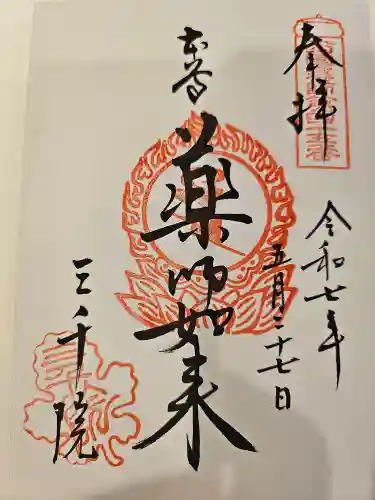 奉拝
令和七年
五月二十七日
薬師如来
三千院